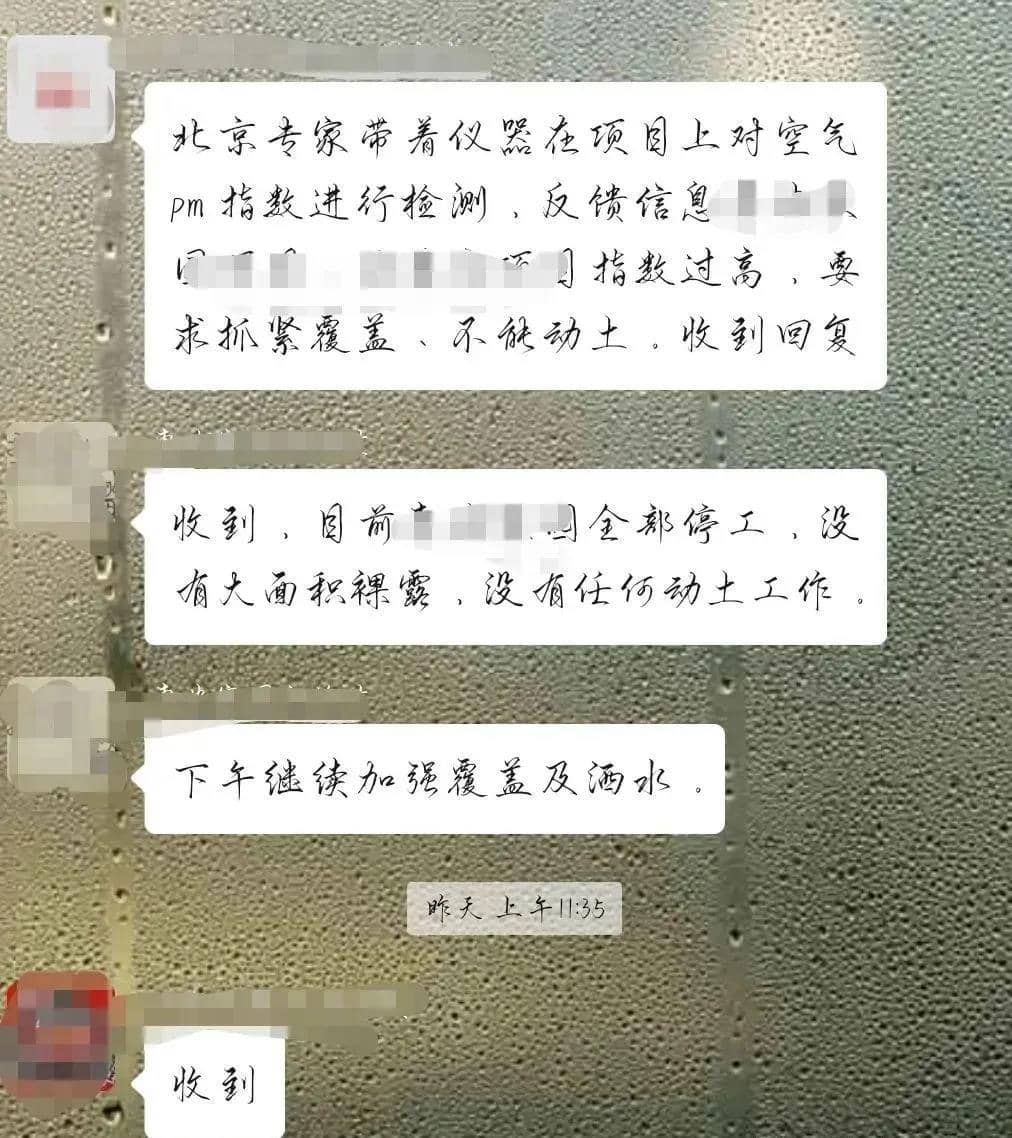 北京专家带着仪器在项目上对空气
pm指数进行检测、反馈信息
指数过高、要
求抓紧覆盖、不能动土。收到回复
收到、目前 全部停工、没
有大面积裸露、没有任何动土工作。
下午继续加强覆盖及洒水。
昨天 上午11:35
收到